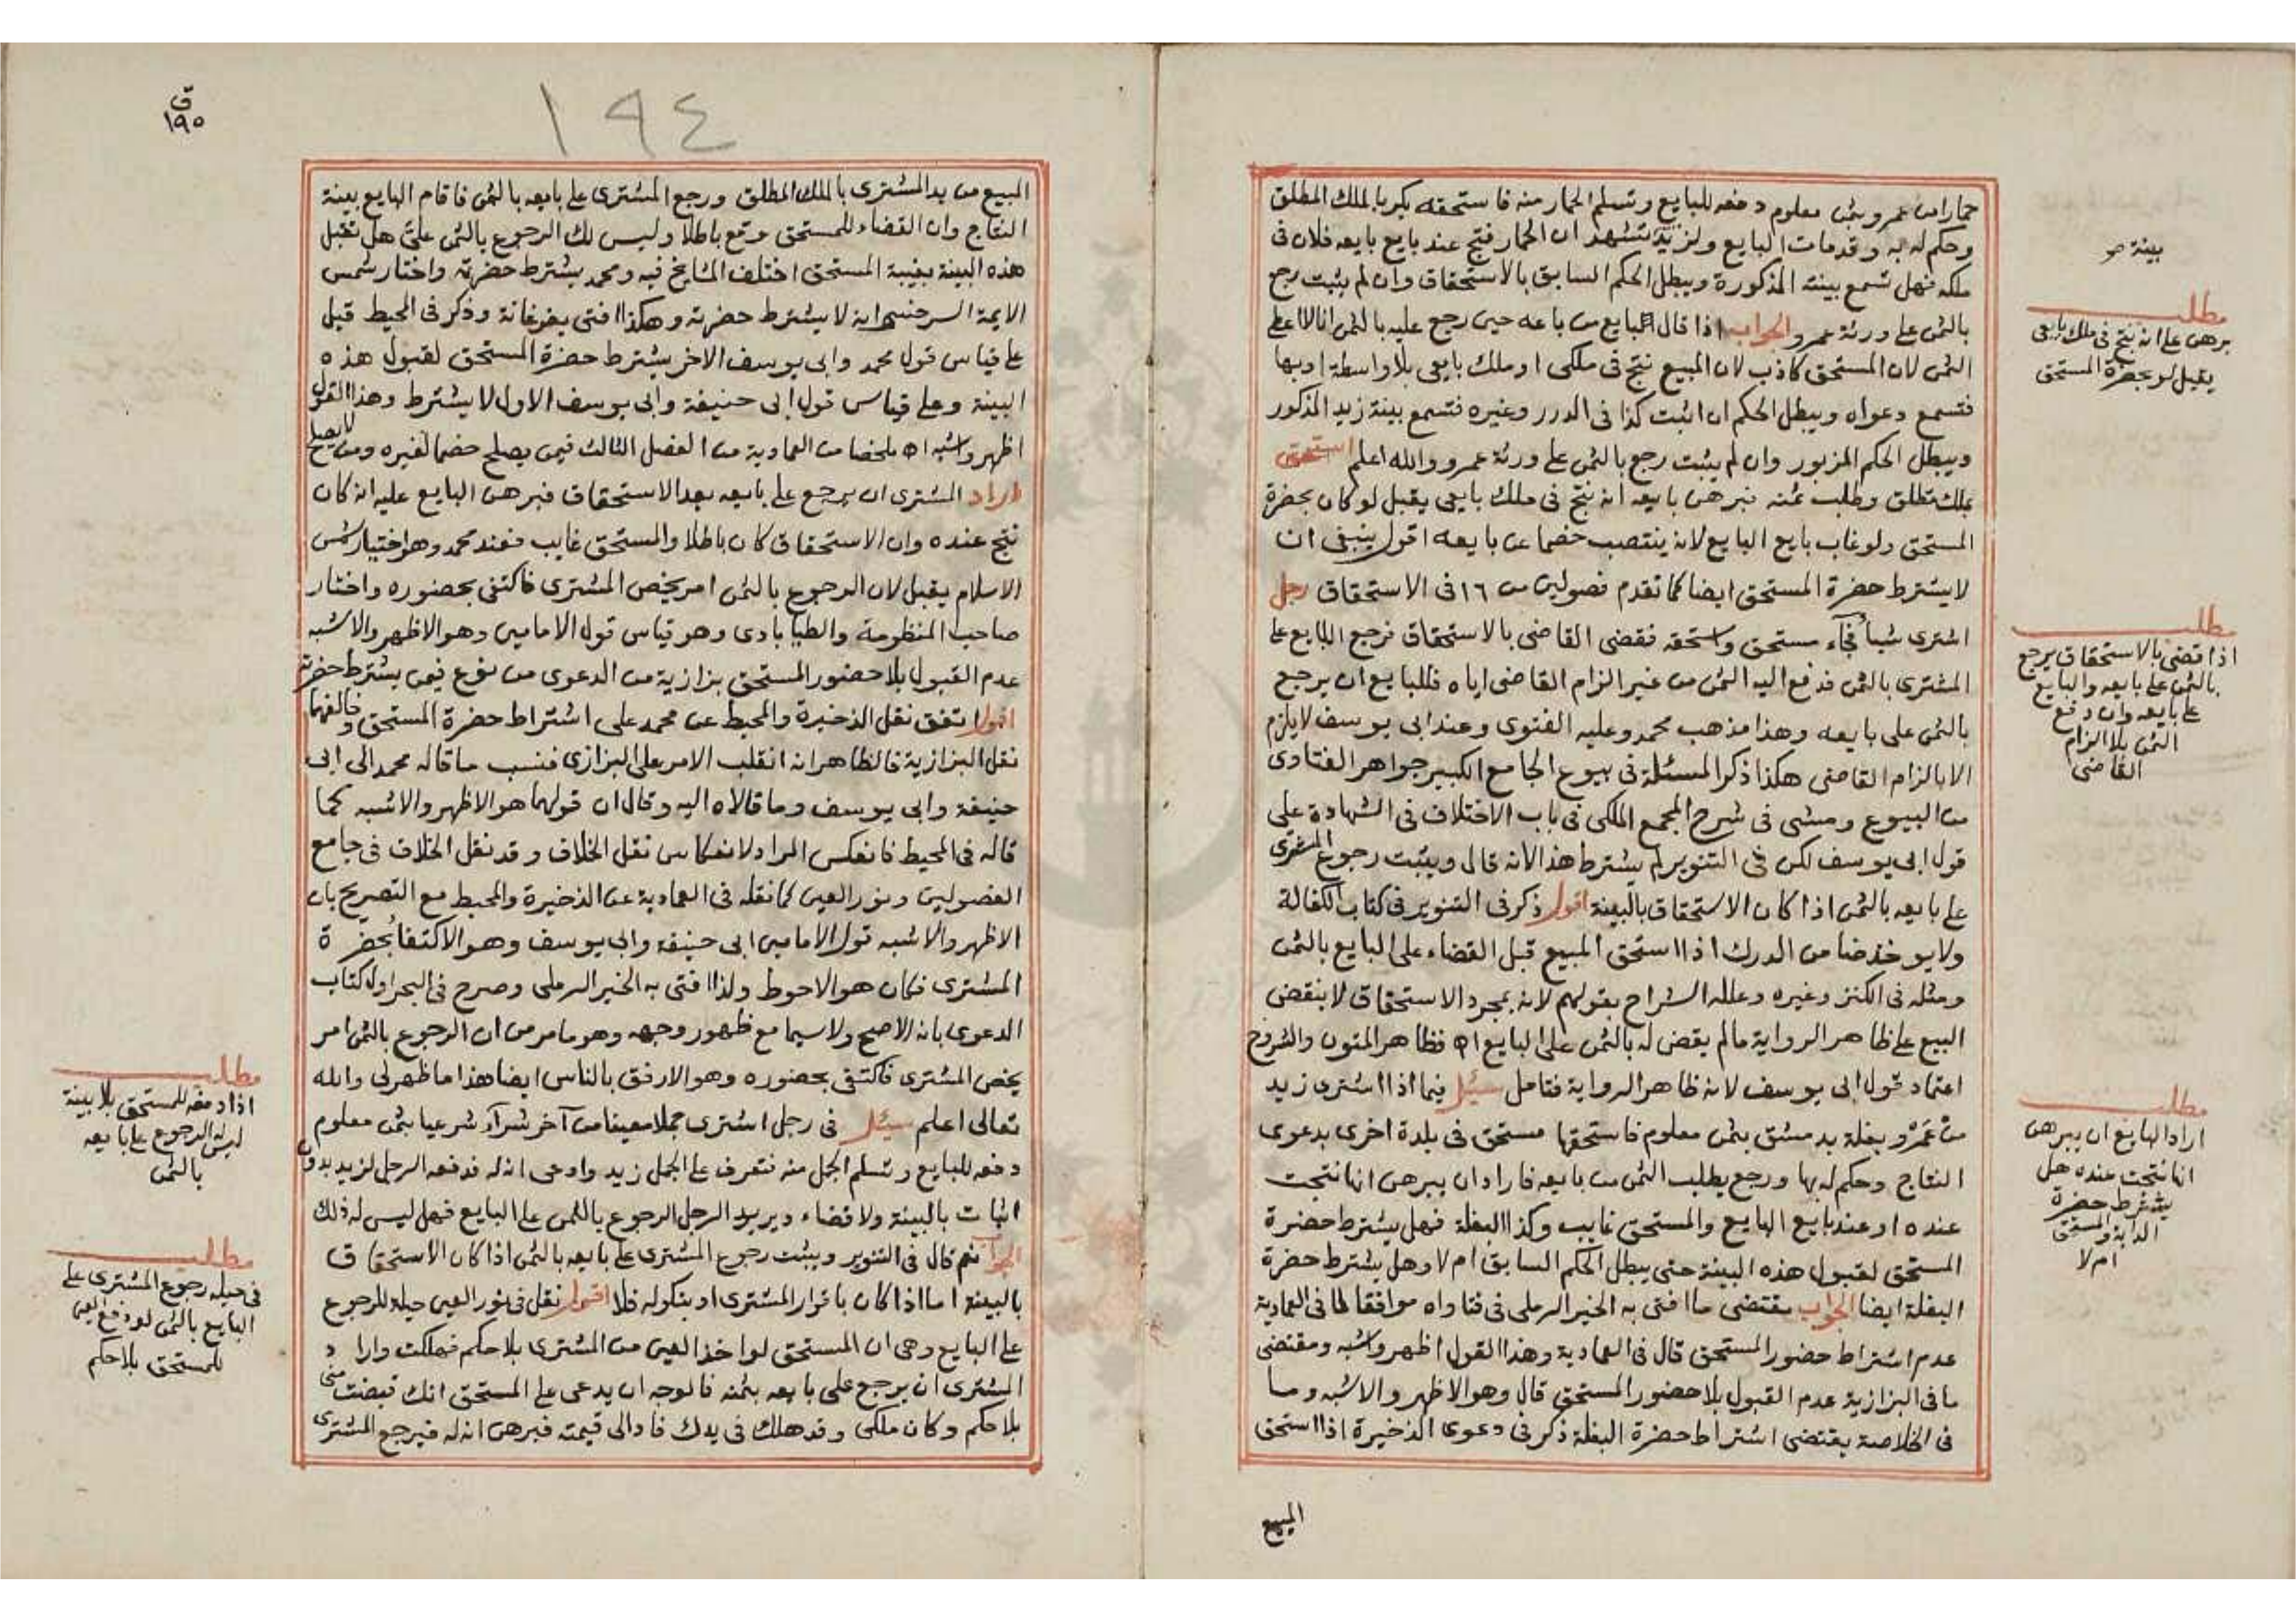 حمارا من عمرو بثمن معلوم دفعه للبايع وتسلم الحمار منه فاستحقه بكر بالملك المطلق
وحكم له به وقد مات البايع ولزيد تشهد ان الحمار نتج عند بايع بايعه فلان فى
بينة صح
ملكه فهل تسمع بينته المذكورة ويبطل الحكم السابق بالاستحقاق وان لم يثبت رجع
بالثمن على ورثة عمرو الجواب اذا قال البايع من باعه حين رجع عليه بالثمن انا لا اعطى
الثمن لان المستحق كاذب لان المبيع نتج فى ملكى او ملك بايعى بلا واسطة او بها
فتسمع دعواه ويبطل الحكم ان اثبت كذا فى الدرر وغيره فتسمع بينة زيد المذكور
ويبطل الحكم المزبور وان لم يثبت رجع بالثمن على ورثة عمرو والله اعلم استحق
بملك مطلق وطلب ثمنه فبرهن بايعه انه نتج فى ملك بايعى يقبل لو كان بحضرة
المستحق ولو غاب بايع البايع لانه ينتصب خصما عن بايعه اقول ينبغى ان
لا يشترط حضرة المستحق ايضا كما تقدم فصولين من ١٦ فى الاستحقاق رجل
اشترى شيأ فجآء مستحق واستحقه فقضى القاضى بالاستحقاق فرجع البايع على
المشترى بالثمن فدفع اليه الثمن من غير الزام القاضى اياه فللبايع ان يرجع
بالثمن على بايعه وهذا مذهب محمد وعليه الفتوى وعند ابى يوسف لا يلزم
الا بالزام القاضى هكذا ذكر المسئلة فى بيوع الجامع الكبير جواهر الفتاوى
من البيوع ومشى فى شرح المجمع الملكى فى باب الاختلاف فى الشهادة على
قول ابى يوسف لكن فى التنوير لم يشترط هذا لانه قال ويثبت رجوع المشترى
على بايعه بالثمن اذا كان الاستحقاق بالبينة اقول ذكر فى التنوير فى كتاب الكفالة
ولا يوخذ ضامن الدرك اذا استحق المبيع قبل القضاء على البايع بالثمن
ومثله فى الكنز وغيره وعلله الشراح بقولهم لانه بمجرد الاستحقاق لا ينقض
البيع على ظاهر الرواية مالم يقض له بالثمن على البايع اه فظاهر المتون والشروح
اعتماد قول ابى يوسف لانه ظاهر الرواية فتامل سئل فيما اذا اشترى زيد
من عمرو بغلة بدمشق بثمن معلوم فاستحقها مستحق فى بلدة اخرى بدعوى
النتاج وحكم له بها ورجع يطلب الثمن من بايعه فاراد ان يبرهن انها نتجت
عنده او عند بايع البايع والمستحق غايب وكذا البغلة فهل يشترط حضرة
المستحق لقبول هذه البينة حتى يبطل الحكم السابق ام لا وهل يشترط حضرة
البغلة ايضا الجواب مقتضى ما افتى به الخير الرملى فى فتاواه موافقا لما فى العمادية
عدم اشتراط حضور المستحق قال فى العمادية وهذا القول اظهر واشبه ومقتضى
ما فى البزازية عدم القبول بلا حضور المستحق قال وهو الاظهر والاشبه وما
فى الخلاصة يقتضى اشتراط حضرة البغلة ذكر فى دعوى الذخيرة اذا استحق
المبيع
مطلب
برهن على انه نتج فى ملك بايعى
يقبل لو بحضرة المستحق
مطلب
اذا قضى بالاستحقاق يرجع
بالثمن على بايعه والبايع
على بايعه وان دفع
الثمن بلا الزام
القاضى
مطلب
اراد البايع ان يبرهن
انها نتجت عنده هل
يشترط حضرة
الدابة والمستحق
ام لا
ق
١٩٥
١٩٤
المبيع من يد المشترى بالملك المطلق ورجع المشترى على بايعه بالثمن فاقام البايع بينة
النتاج وان القضاء للمستحق وقع باطلا وليس لك الرجوع بالثمن علىّ هل تقبل
هذه البينة بغيبة المستحق اختلف المشايخ فيه ومحمد يشترط حضرته واختار شمس
الايمة السرخسى انه لا يشترط حضرته وهكذا افتى بفرغانة وذكر فى المحيط قبل
على قياس قول محمد وابى يوسف الاخر يشترط حضرة المستحق لقبول هذه
البينة وعلى قياس قول ابى حنيفة وابى يوسف الاول لا يشترط وهذا القول
اظهر واشبه اه ملخصا من العمادية من الفصل الثالث فيمن يصلح خصما لغيره ومن لا يصلح
اراد المشترى ان يرجع على بايعه بعد الاستحقاق فبرهن البايع عليه انه كان
نتج عنده وان الاستحقاق كان باطلا والمستحق غايب فعند محمد وهو اختيار شمس
الاسلام يقبل لان الرجوع بالثمن امر يخص المشترى فاكتفى بحضوره واختار
صاحب المنظومة والطيابادى وهو قياس قول الامامين وهو الاظهر والاشبه
عدم القبول بلا حضور المستحق بزازية من الدعوى من نوع فيمن يشترط حضرته
اقول اتفق نقل الذخيرة والمحيط عن محمد على اشتراط حضرة المستحق وخالفهما
نقل البزازية فالظاهر انه انقلب الامر على البزازى فنسب ما قاله محمد الى ابى
حنيفة وابى يوسف وما قالاه اليه وقال ان قولهما هو الاظهر والاشبه كما
قاله فى المحيط فانعكس المراد لانعكاس نقل الخلاف وقد نقل الخلاف فى جامع
الفصولين ونور العين كما نقله فى العمادية عن الذخيرة والمحيط مع التصريح بان
الاظهر والاشبه قول الامامين ابى حنيفة وابى يوسف وهو الاكتفا بحضرة
المشترى فكان هو الاحوط ولذا افتى به الخير الرملى وصرح فى البحر اول كتاب
الدعوى بانه الاصح ولا سيما مع ظهور وجهه وهو ما مر من ان الرجوع بالثمن امر
يخص المشترى فاكتفى بحضوره وهو الارفق بالناس ايضا هذا ما ظهر لى والله
تعالى اعلم سئل فى رجل اشترى جملا معينا من آخر شرآء شرعيا بثمن معلوم
دفعه للبايع وتسلم الجمل منه فتعرف على الجمل زيد وادعى انه له فدفعه الرجل لزيد بدون
اثبات بالبينة ولا قضاء ويريد الرجل الرجوع بالثمن على البايع فهل ليس له ذلك
الجواب نعم قال فى التنوير ويثبت رجوع المشترى على بايعه بالثمن اذا كان الاستحقاق
بالبينة اما اذا كان باقرار المشترى او بنكوله فلا اقول نقل فى نور العين حيلة للرجوع
على البايع وهى ان المستحق لو اخذ العين من المشترى بلا حكم فهلكت واراد
المشترى ان يرجع على بايعه بثمنه فالوجه ان يدعى على المستحق انك قبضت منى
بلا حكم وكان ملكى وقد هلك فى يدك فاد الى قيمته فبرهن انه له فيرجع المشترى
مطلب
اذا دفعه للمستحق بلا بينة
ليس له الرجوع على بايعه
بالثمن
مطلب
فى حيلة رجوع المشترى على
البايع بالثمن لو دفع العين
للمستحق بلا حكم